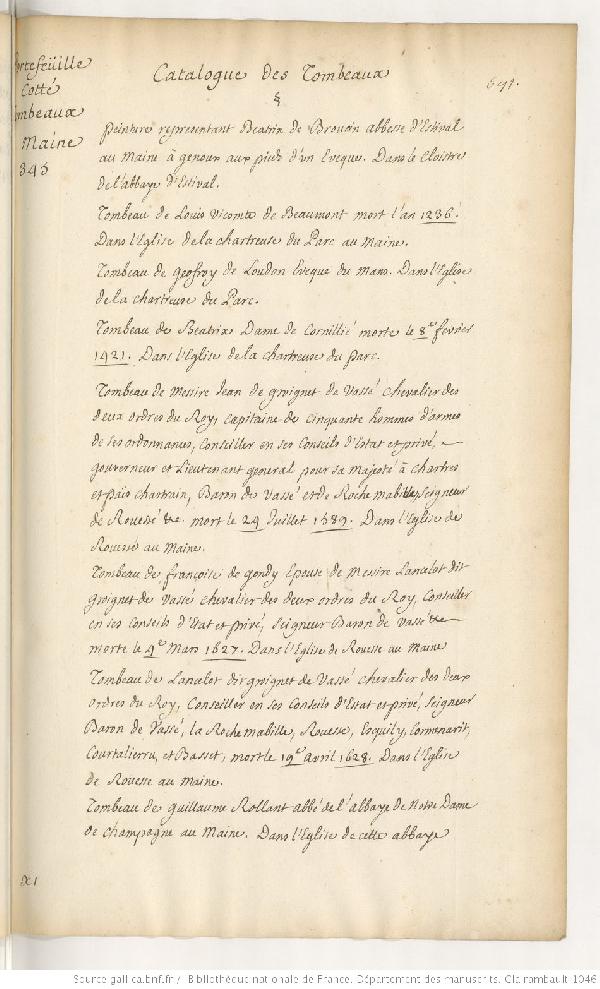 Portefeüille
Cotté
Tombeaux
Maine
345
Catalogue des Tombeaux
§
691.
Peinture representant Beatrix de Broucin abbesse d'Estival
au Maine à genoux aux pieds d'un Eveque. Dans le Cloistre
de l'abbaye d'Estival.
Tombeau de Louis Vicomte de Beaumont mort l'an 1236.
Dans l'Eglise de la chartreuse du Parc au Maine.
Tombeau de Geofroy de Loudon Eveque du Mans. Dans l'Eglise
de la chartreuse du Parc.
Tombeau de Beatrix Dame de Cornillié morte le 8e fevrier
1421. Dans l'Eglise de la chartreuse du parc.
Tombeau de Messire Jean de groignet de Vassé chevalier des
deux ordres du Roy, capitaine de cinquante hommes d'armes
de ses ordonnances, Conseiller en ses Conseils d'Estat et privé,
gouverneur et Lieutenant general pour sa Majesté à Chartres
et païs chartrain, Baron de Vassé et de Roche mabille, seigneur
de Rouessé &c. mort le 24 Juillet 1589. Dans l'Eglise de
Rouessé au Maine.
Tombeau de françoise de gondy Epouse de Messire Lancelot dit
groignet de Vassé chevalier des deux ordres du Roy, Conseiller
en ses Conseils d'Estat et privé, Seigneur Baron de Vassé &c
morte le 9e Mars 1627. Dans l'Eglise de Rouesse au Maine
Tombeau de Lancelot dit groignet de Vassé chevalier des deux
ordres du Roy, Conseiller en ses Conseils d'Estat et privé, Seigneur
Baron de Vassé, la Roche mabille, Rouesse, Esquily, Cormenarit,
Courtalierru, et Basset, mort le 19e avril 1628. Dans l'Eglise
de Rouesse au Maine.
Tombeau de guillaume Rollant abbé de l'abbaye de Notre Dame
de champagne au Maine. Dans l'Eglise de cette abbaye
Source gallica.bnf.fr / Bibliothèque nationale de France. Département des manuscrits. Clairambault 1046